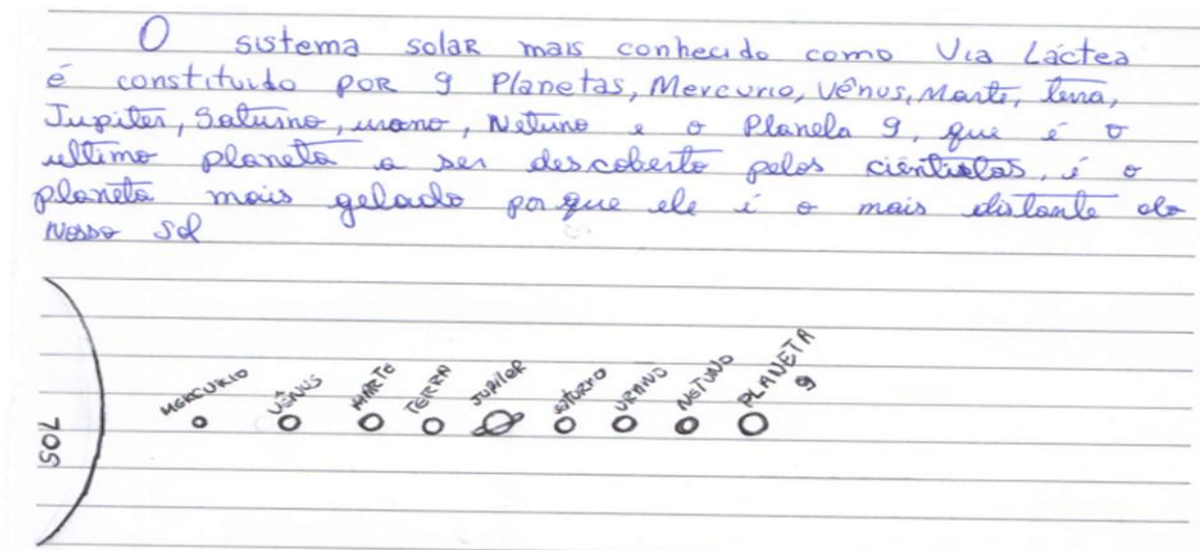 O sistema solar mais conhecido como Via Láctea
é constituido por 9 Planetas, Mercurio, Vênus, Marte, terra,
Jupiter, Saturno, urano, Netuno e o Planeta 9, que é o
ultimo planeta a ser descoberto pelos cientistas, é o
planeta mais gelado porque ele é o mais distante do
Nosso Sol
MERCURIO
VÊNUS
MARTE
TERRA
JUPITER
SATURNO
URANO
NETUNO
PLANETA
9
SOL